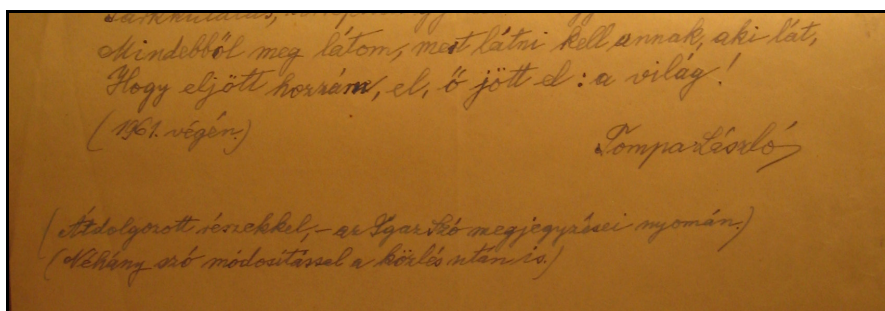 Mindebből meg látom, mert látni kell annak, aki lát,
Hogy eljött hozzám, el, ő jött el: a világ!
(1961. végén.)
Tompa László
(Átdolgozott részekkel,- az Igaz Szó megjegyzései nyomán.)
(Néhány szó módosítással a közlés után is.)